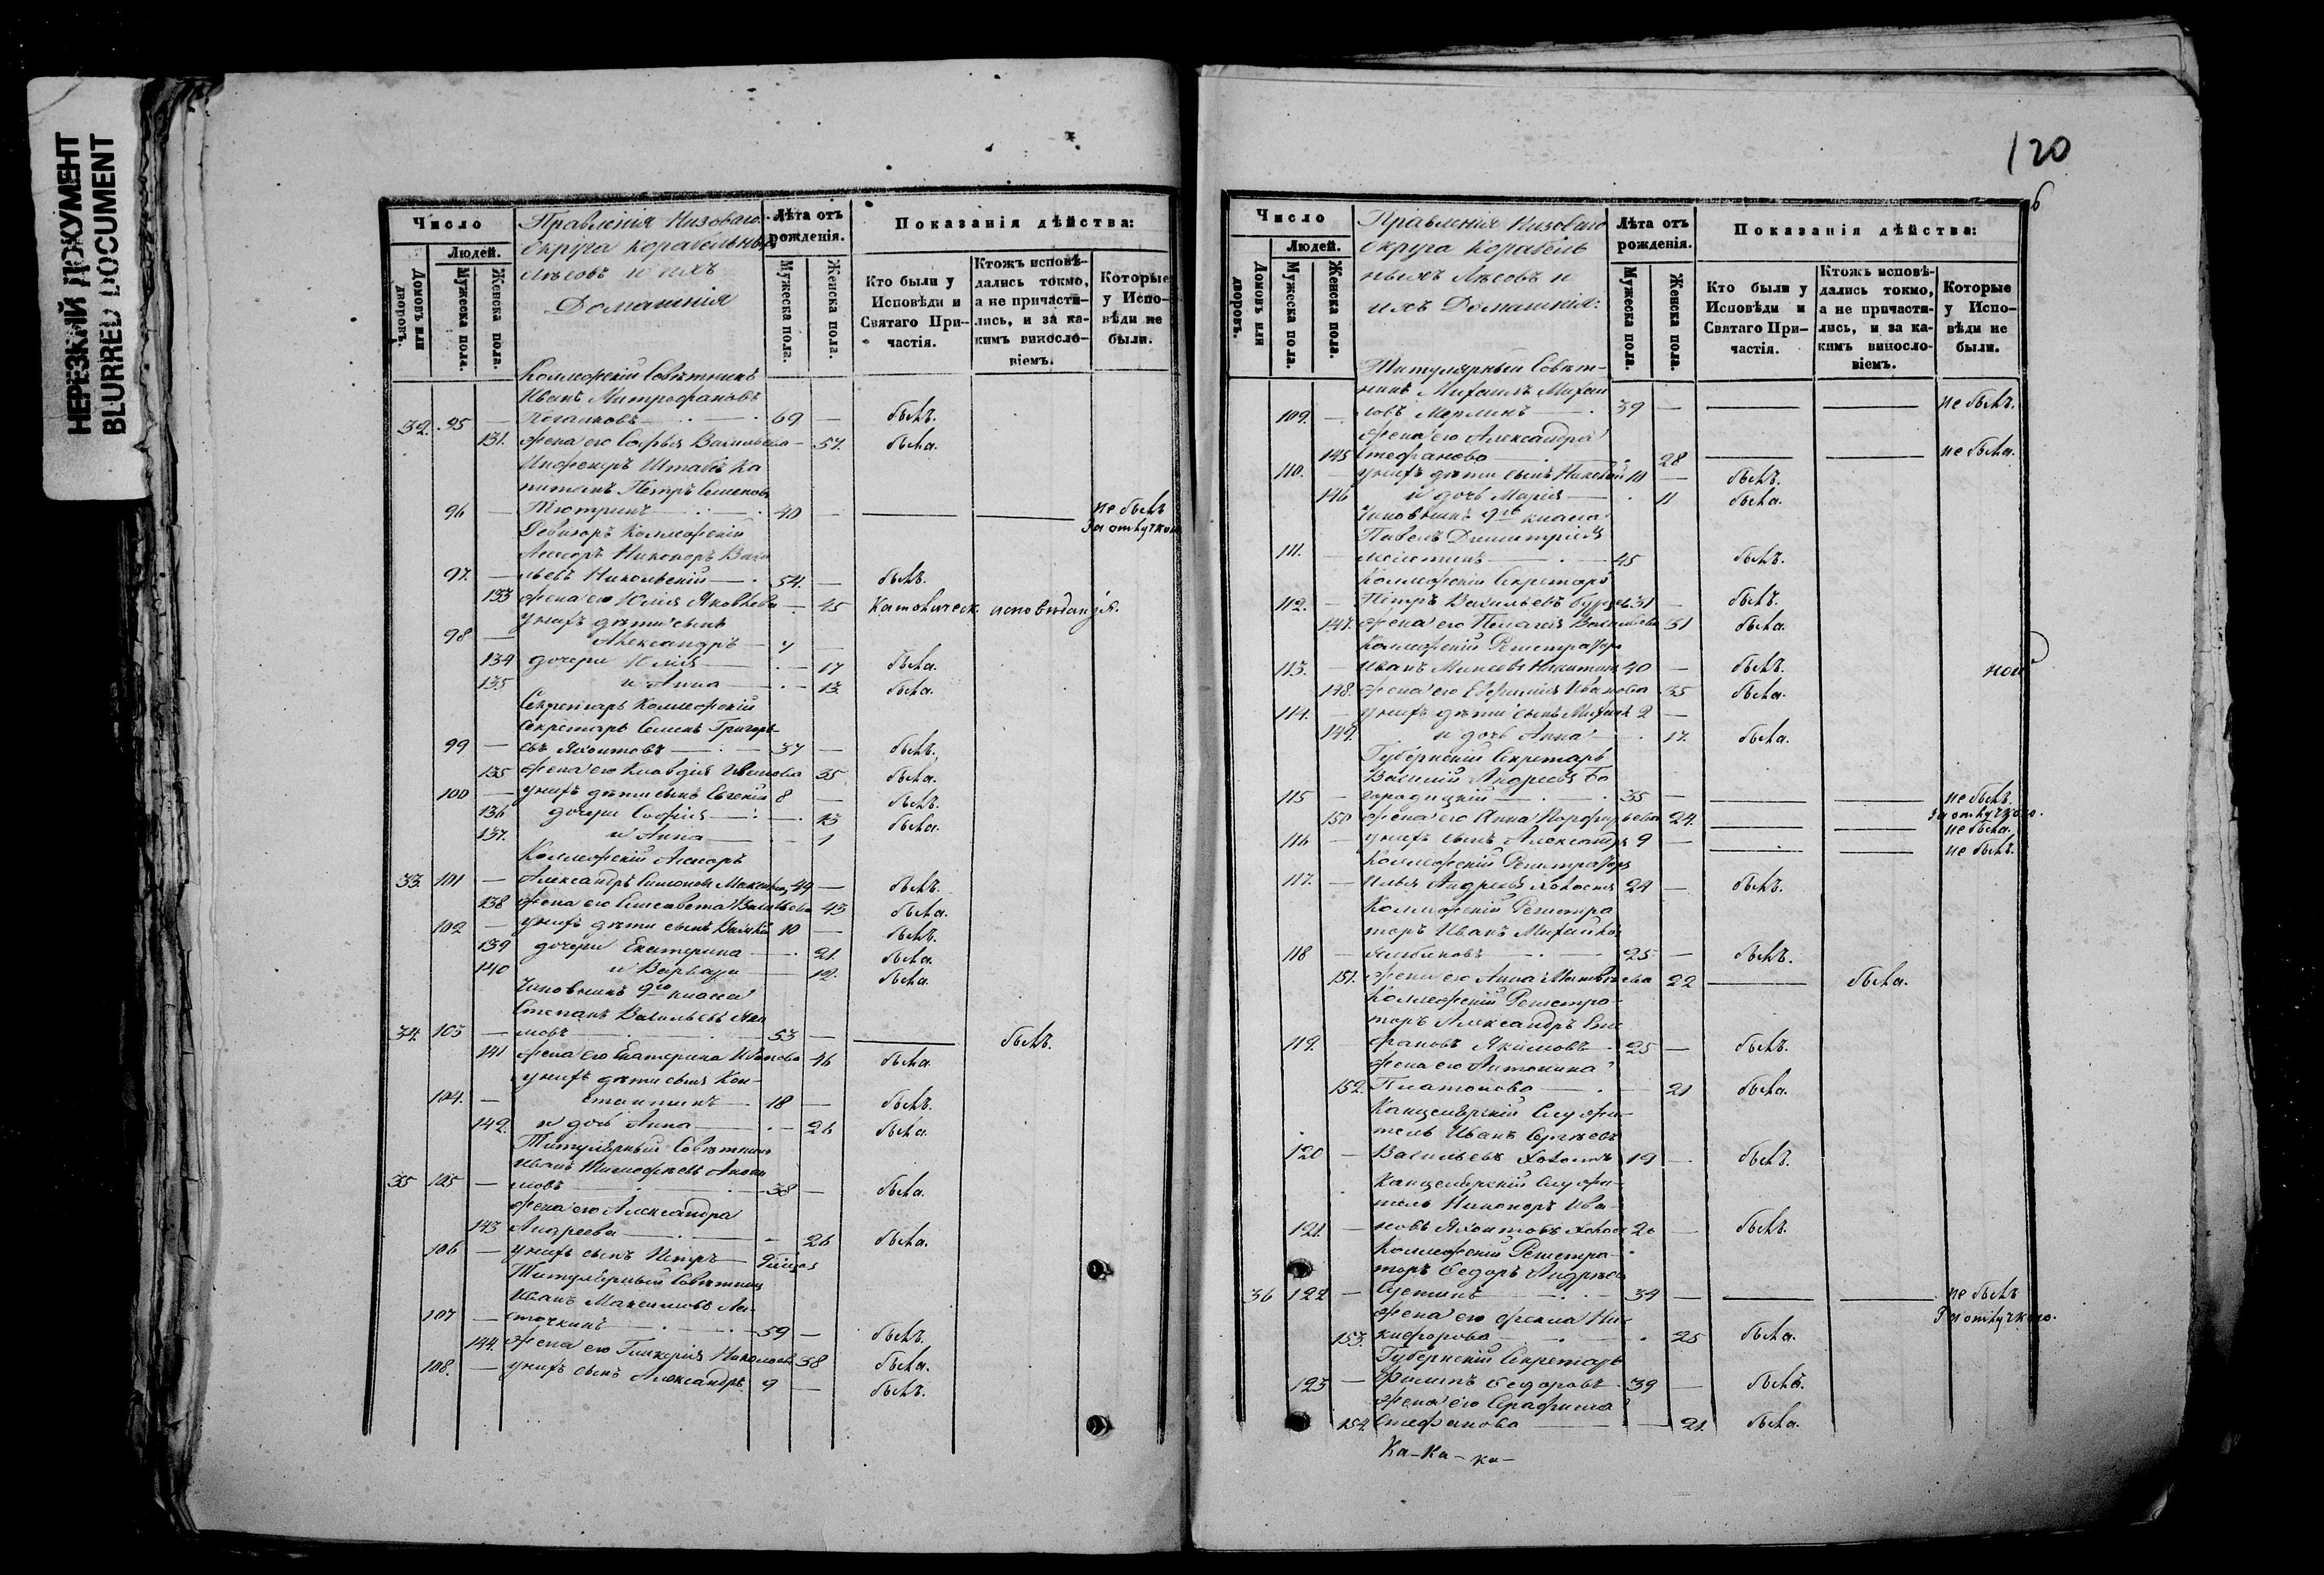 НЕРЕЗКИЙ ДОКУМЕНТ
BLURRED DOCUMENT
Число
Людей.
Домовъ или дворовъ.
Мужеска пола.
Женска пола.
Правленія Низоваго
Округа корабельныхъ
лѣсовъ и ихъ
Домашнія
Лѣта отъ рожденія.
Мужеска пола.
Женска пола.
Показанія дѣйства:
Кто были у Исповѣди и Святаго Причастія.
Ктожъ исповѣдались токмо, а не причастились, и за какимъ винословіемъ.
Которые у Исповѣди не были.
Коллежскій Совѣтникъ
Иванъ Митрофановъ
32. 95 — 69 — былъ.
131. жена его Софья Васильева — 57. была.
Штабсъ Ка
питанъ Петръ Семеновъ
96 — 40 — не былъ
За отлучкою
Ревизоръ Коллежскій
Ассесоръ Никоноръ Васи
97. — льевъ Никольскій — 54. — былъ.
133 жена его Юлія Яковлева — 45 Католическ. исповѣданія.
у нихъ дѣти сынъ
98 — Александръ — 7 —
134 дочери Юлія — 17 была.
135 и Анна — 13 была.
Секретарь Коллежскій
Секретарь Семенъ Григорь-
99 — евъ Яхонтовъ — 37 — былъ.
135 жена его Клавдія Иванова 35 была.
100 — у нихъ дѣти сынъ Евгеній 8 — былъ.
136 дочери Софія — 13 была.
137. и Анна — 1
Коллежскій Ассесоръ
33. 101 — Александръ Симоновъ 44 — былъ.
138 жена его Елисавета Васильева 43 была.
102 — у нихъ дѣти сынъ Василій 10 — былъ.
139 дочери Екатерина — 21. была.
140 и Варвара — 12. была.
Чиновникъ 9го класса
Степанъ Васильевъ Аки
34. 103 — мовъ — 53 — былъ.
141 жена его Екатерина Иванова 46 была.
у нихъ дѣти сынъ Кон-
104. — стантинъ — 18 — былъ.
142. и дочь Анна — 26 была.
Титулярный Совѣтникъ
Иванъ Тимофеевъ
35 105 — мовъ — 38 — была.
жена его Александра
143 Андреева — 26 была.
106 — у нихъ сынъ Петръ —
Титулярный Совѣтникъ
Иванъ Максимовъ Ла-
107 — сточкинъ — 59 — былъ.
144. жена его Гликерія Николаева 38 была.
108. — у нихъ сынъ Александръ 9 — былъ.
120
6
Число
Людей.
Домовъ или дворовъ.
Мужеска пола.
Женска пола.
Правленія Низоваго
Округа корабель
ныхъ лѣсовъ и
ихъ Домашнія:
Лѣта отъ рожденія.
Мужеска пола.
Женска пола.
Показанія дѣйства:
Кто были у Исповѣди и Святаго Причастія.
Ктожъ исповѣдались токмо, а не причастились, и за какимъ винословіемъ.
Которые у Исповѣди не были.
Титулярный Совѣт-
никъ Михаилъ Михаи
109. — ловъ Мерлинъ — 39 — не былъ.
жена его Александра
145 Стефанова — 28 не была.
110. у нихъ дѣти сынъ Николай 10 — былъ.
146 и дочь Марія — 11 была.
Чиновникъ 9го класса
Павелъ Димитріевъ
111. — 45 былъ.
Коллежскій Секретарь
112. — Петръ Васильевъ 31 — былъ.
147. жена его Пелагея Васильева 31 была.
Коллежскій Регистраторъ
113. — Иванъ Никитинъ 40 — былъ.
148. жена его Евфимія Иванова 35 была.
114. — у нихъ дѣти сынъ Михаилъ 2 —
149. и дочь Анна — 17. была.
Губернскій Секретарь
Василій Андреевъ Бо
115 — городицкій — 35 — не былъ.
За отлучкою.
150 жена его Анна Порфирьева 24. не была.
116 — у нихъ сынъ Александръ 9 — не былъ.
Коллежскій Регистраторъ
117. — Илья Андреевъ холостъ 24 — былъ.
Коллежскій Регистра
торъ Иванъ Михайло
118 — 25 — былъ.
151. жена его Анна Матвѣева 22 — была.
Коллежскій Регистра-
торъ Александръ Сте
119. — фановъ Якимовъ — 25 — былъ.
жена его Антонина
152. Платонова — 21 была.
Канцелярскій Служи-
тель Иванъ Сергѣевъ
120 — Васильевъ холостъ 19 — былъ.
Канцелярскій Служи-
тель Никоноръ Ива-
121. — новъ Яхонтовъ холост 20 — былъ.
Коллежскій Регистра-
торъ Ѳедоръ Андреевъ
36 122 — 34 — не былъ
За отлучкою.
жена его Ни-
153. кифорова — 25 была.
Губернскій Секретарь
123 — Филипъ Ѳедоровъ 39 — былъ.
жена его Серафима
154. Стефанова — 21. была.
Ка-Ка-ка-